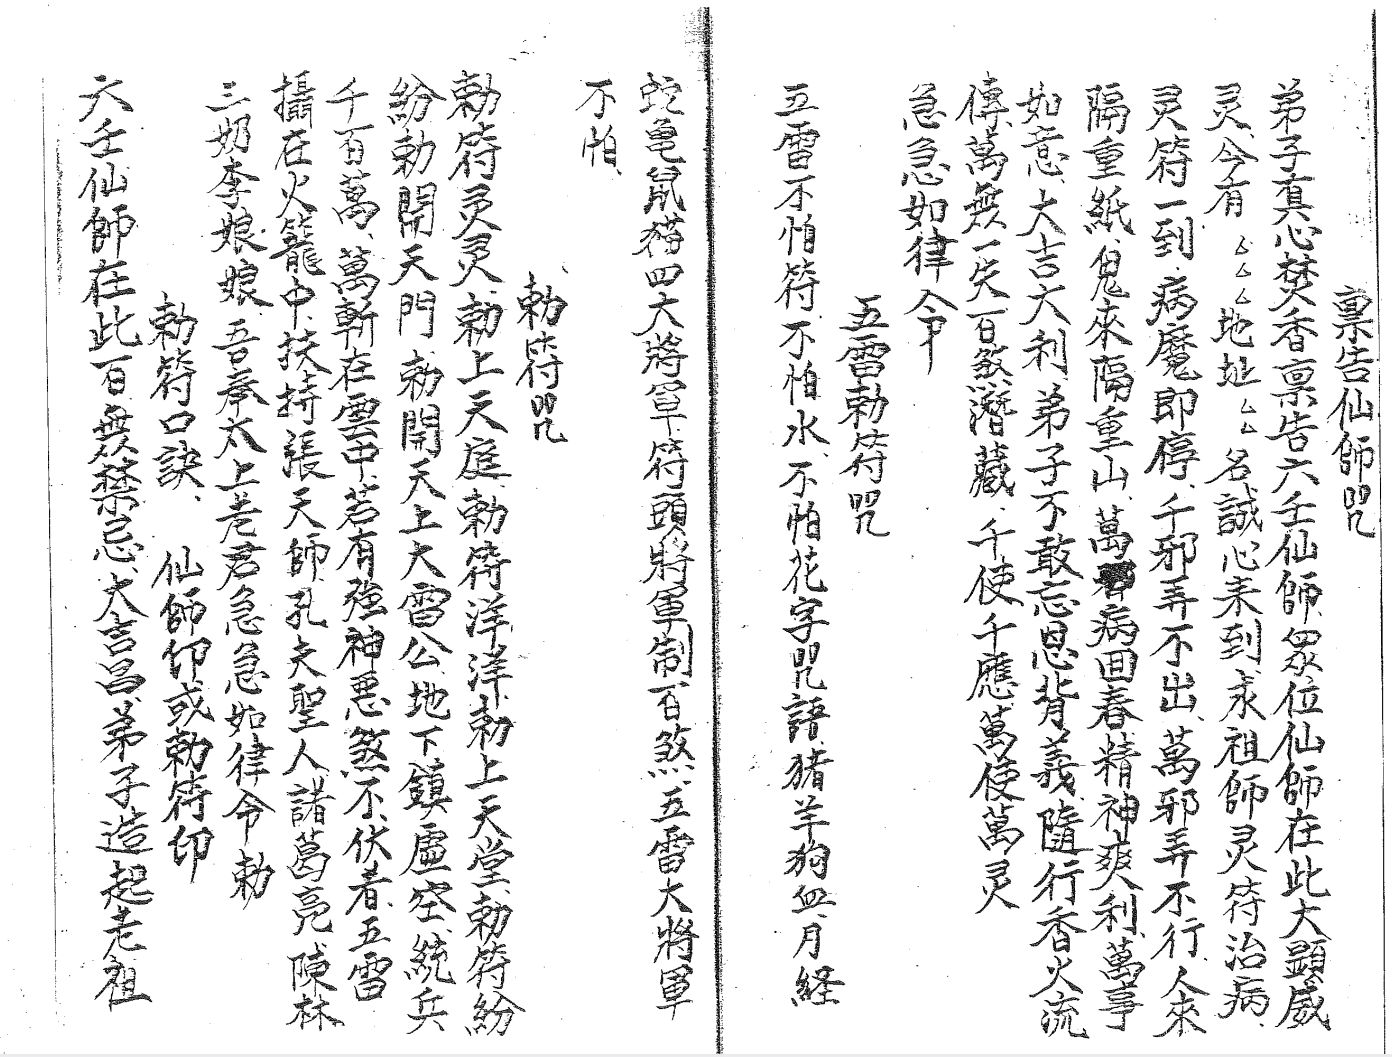 禀告仙師咒
弟子真心焚香禀告六壬仙師、眾位仙師在此大顕威
灵、今有 厶厶厶地址厶厶名誠心来到求祖師灵符治病、
灵符一到、病魔即停、千邪弄不出、萬邪弄不行、人來
隔重紙、鬼來隔重山、萬病回春精神爽利、萬事
如意、大吉大利、弟子不敢忘恩背義、隨行香火流
傳萬無一失、百煞潛藏、千使千應、萬使萬灵
急急如律令
五雷勅符咒
五雷不怕符、不怕水、不怕花字咒語、猪羊狗血、月経
不怕、
蛇亀鼠猫四大將軍、符頭將軍制百煞、五雷大將軍
勅符咒
勅符灵灵、勅上天庭、勅符洋洋、勅上天堂、勅符紛
紛、勅開天門、勅開天上大雷公、地下鎮虛空、統兵
千百萬、萬斬在雲中、若有強神惡煞不伏者、五雷
攝在火籠中、扶持張天師、孔夫聖人、諸葛亮、陳林
三奶李娘娘、吾奉太上老君急急如律令勅
勅符口訣、 仙師印或勅符印
六壬仙師在此、百無禁忌、大吉昌、弟子造起老祖